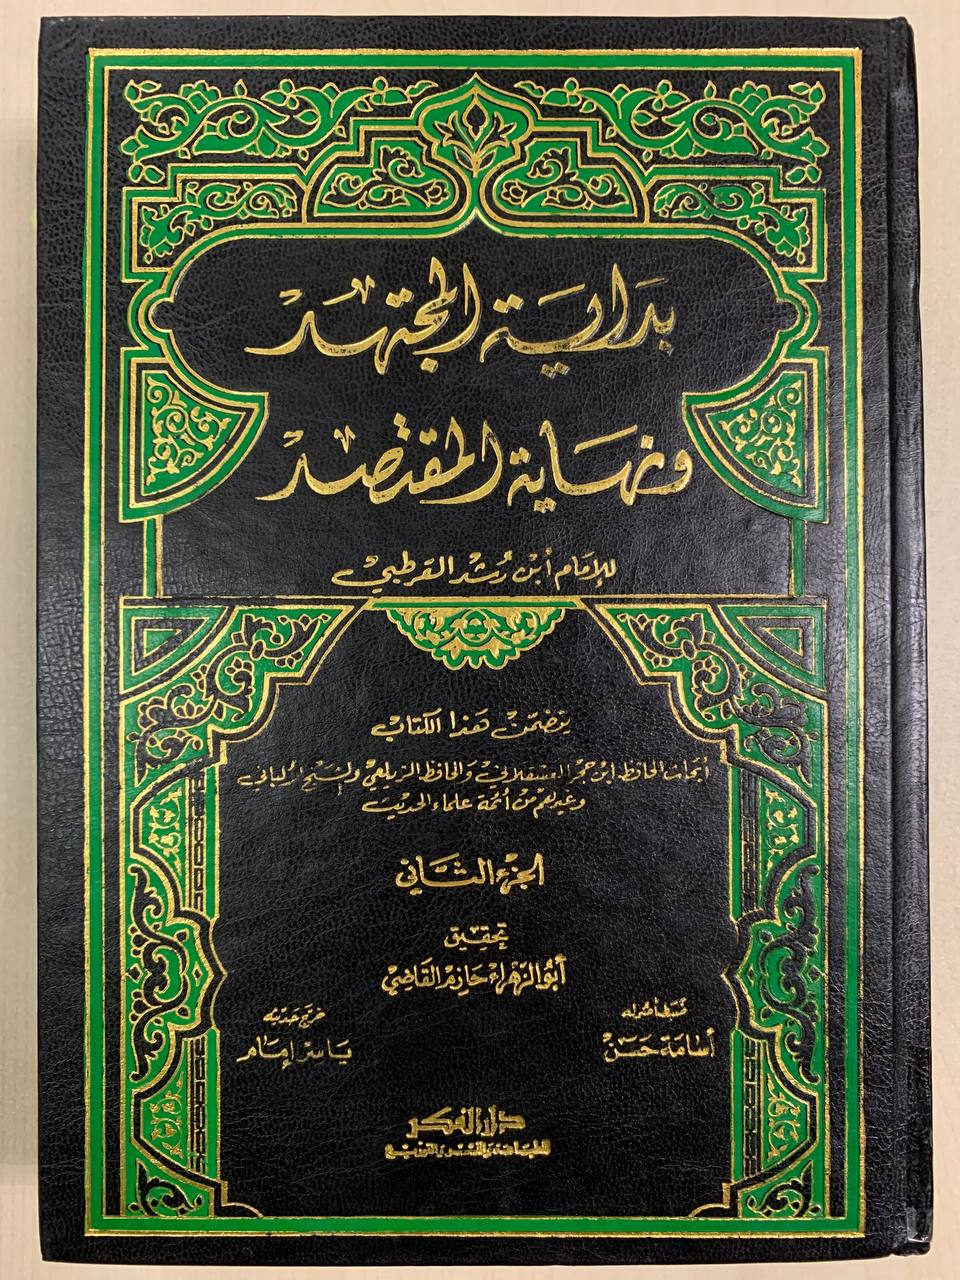 بداية المجتهد
ونهاية المقتصد
للإمام أبن رُشد القرطبي
يتضمّن هَذا الكتاب
أبحاث الحافظ ابن حجر العسقلاني والحافظ الزيلعي والشيخ الألباني
وغيرهم من أئمّة علماء الحديث
الجزء الثَّاني
تحقِيق
أبُو الزّهراء حَازم القَاضِي
ضبط أصوله
أسَامَة حَسَن
خرّج حَديثه
يَاسِر إمَام
دار الفكر
للطباعة والنشر والتوزيع